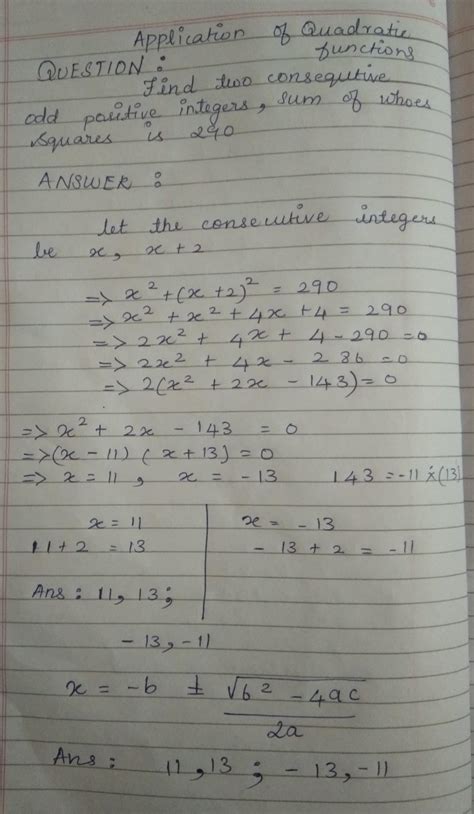 Application of Quadratic
functions
QUESTION :
Find two consequtive
odd positive integers, sum of whoes
squares is 290
ANSWER :
let the consecutive integers
be x, x+2
=> x² + (x + 2)² = 290
=> x² + x² + 4x + 4 = 290
=> 2x² + 4x + 4 - 290 = 0
=> 2x² + 4x - 286 = 0
=> 2(x² + 2x - 143) = 0
=> x² + 2x - 143 = 0
=> (x - 11) (x + 13) = 0
=> x = 11, x = -13 143 = -11 × (13)
x = 11 x = -13
11 + 2 = 13 -13 + 2 = -11
Ans : 11, 13;
-13, -11
x = -b ± √b² - 4ac
2a
Ans : 11, 13 ; -13, -11